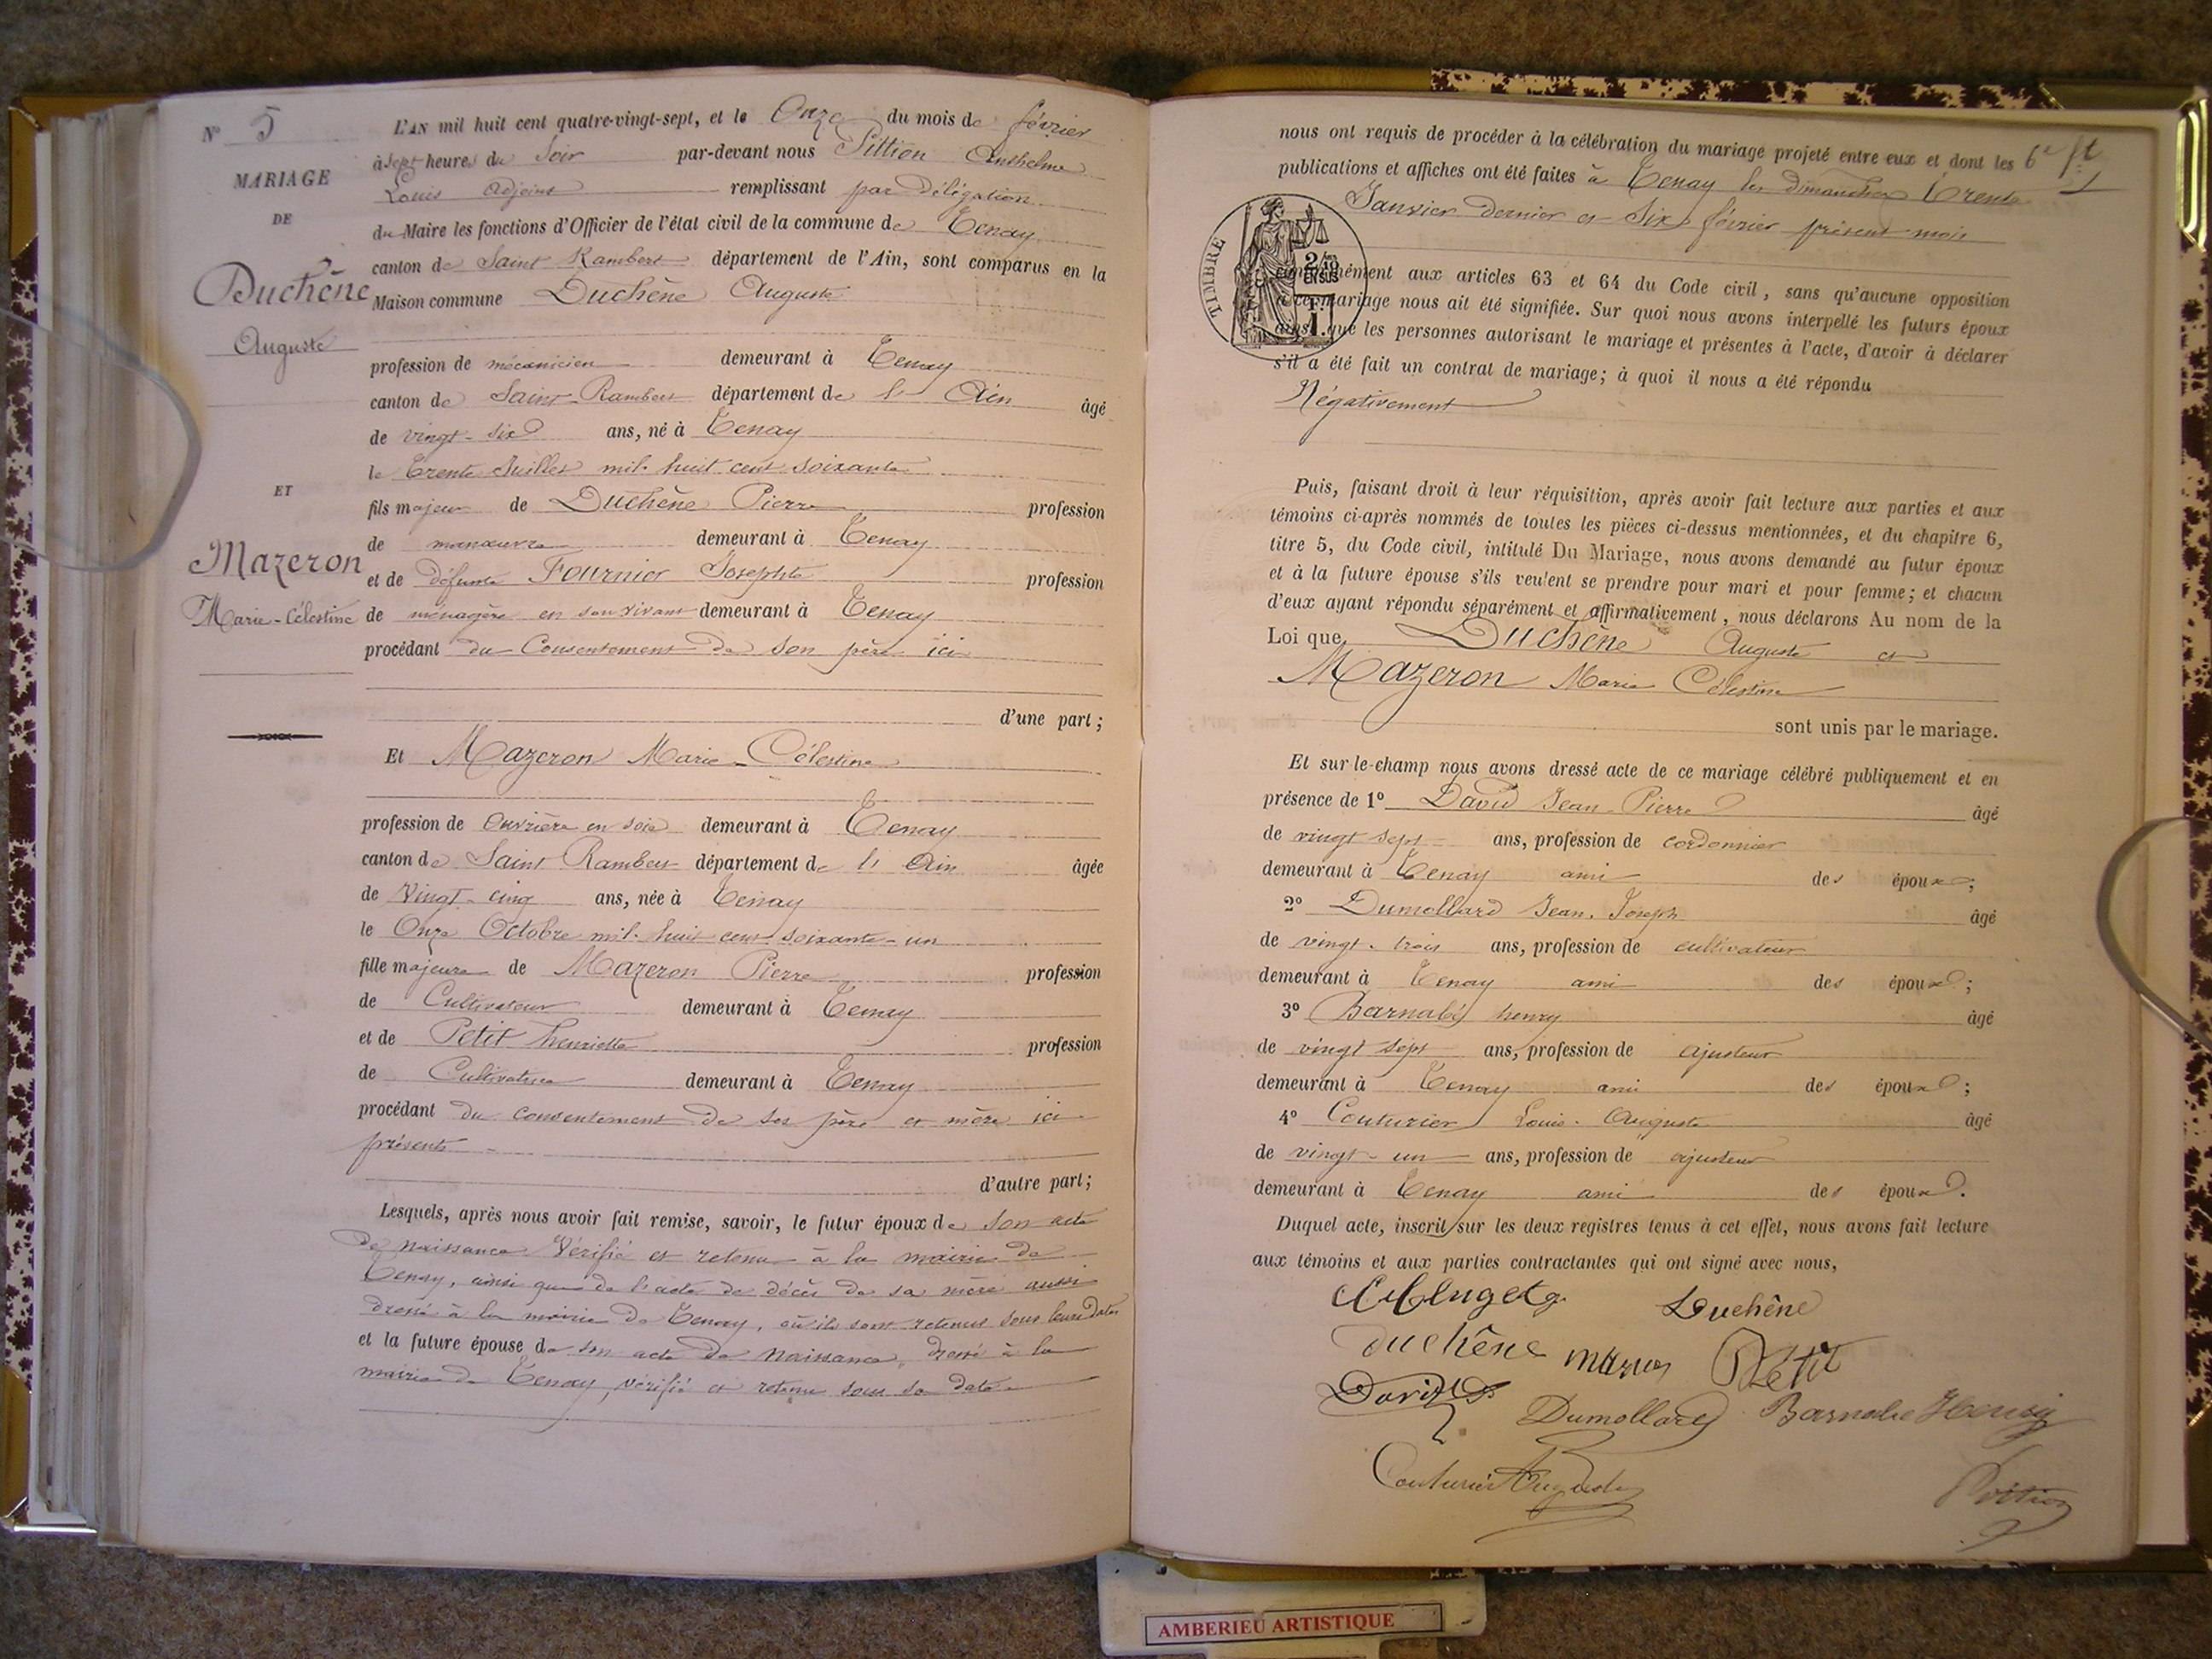 N° 5
MARIAGE
DE
Duchêne
Auguste
ET
Mazeron
Marie-Célestine
L'AN mil huit cent quatre-vingt-sept, et le Onze du mois de février
à sept heures du Soir par-devant nous Pittion Anthelme
Louis adjoint remplissant par Délégation
du Maire les fonctions d'Officier de l'état civil de la commune de Tenay
canton de Saint Rambert département de l'Ain, sont comparus en la
Maison commune Duchêne Auguste
profession de mécanicien demeurant à Tenay
canton de Saint-Rambert département de l' Ain âgé
de vingt-six ans, né à Tenay
le trente Juillet mil huit cent soixante
fils majeur de Duchêne Pierre profession
de manœuvre demeurant à Tenay
et de défunte Fournier Josephte profession
de ménagère en son vivant demeurant à Tenay
procédant du Consentement de son père ici
d'une part ;
Et Mazeron Marie-Célestine
profession de Ouvrière en soie demeurant à Tenay
canton de Saint Rambert département de l' Ain âgée
de Vingt-cinq ans, née à Tenay
le Onze Octobre mil huit cent soixante-un
fille majeure de Mazeron Pierre profession
de Cultivateur demeurant à Tenay
et de Petit henriette profession
de Cultivatrice demeurant à Tenay
procédant du consentement de ses père et mère ici
présents
d'autre part ;
Lesquels, après nous avoir fait remise, savoir, le futur époux de son acte
de naissance Vérifié et retenu à la mairie de
Tenay, ainsi que de l'acte de décès de sa mère aussi
dressé à la mairie de Tenay, où ils sont retenus sous leurs dates
et la future épouse de son acte de naissance, dressé à la
mairie de Tenay, vérifié et retenu sous sa date
6e ft
nous ont requis de procéder à la célébration du mariage projeté entre eux et dont les
publications et affiches ont été faites à Tenay les dimanches trente
Janvier dernier et Six février présent mois
TIMBRE
2/10
EN SUS
conformément aux articles 63 et 64 du Code civil, sans qu'aucune opposition
à ce mariage nous ait été signifiée. Sur quoi nous avons interpellé les futurs époux
ainsi que les personnes autorisant le mariage et présentes à l'acte, d'avoir à déclarer
s'il a été fait un contrat de mariage ; à quoi il nous a été répondu
Négativement
Puis, faisant droit à leur réquisition, après avoir fait lecture aux parties et aux
témoins ci-après nommés de toutes les pièces ci-dessus mentionnées, et du chapitre 6,
titre 5, du Code civil, intitulé Du Mariage, nous avons demandé au futur époux
et à la future épouse s'ils veulent se prendre pour mari et pour femme ; et chacun
d'eux ayant répondu séparément et affirmativement, nous déclarons Au nom de la
Loi que Duchêne Auguste et
Mazeron Marie Célestine
sont unis par le mariage.
Et sur-le-champ nous avons dressé acte de ce mariage célébré publiquement et en
présence de 1° David Jean-Pierre âgé
de vingt sept ans, profession de cordonnier
demeurant à Tenay ami des époux ;
2° Dumollard Jean-Joseph âgé
de vingt-trois ans, profession de cultivateur
demeurant à Tenay ami des époux ;
3° Barnabé henry âgé
de vingt sept ans, profession de ajusteur
demeurant à Tenay ami des époux ;
4° Couturier Louis-Auguste âgé
de vingt-un ans, profession de ajusteur
demeurant à Tenay ami des époux.
Duquel acte, inscrit sur les deux registres tenus à cet effet, nous avons fait lecture
aux témoins et aux parties contractantes qui ont signé avec nous,
Duchêne
duchêne Petit
David
Dumollard Barnabe Henry
Couturier Auguste
Pittion
AMBERIEU ARTISTIQUE